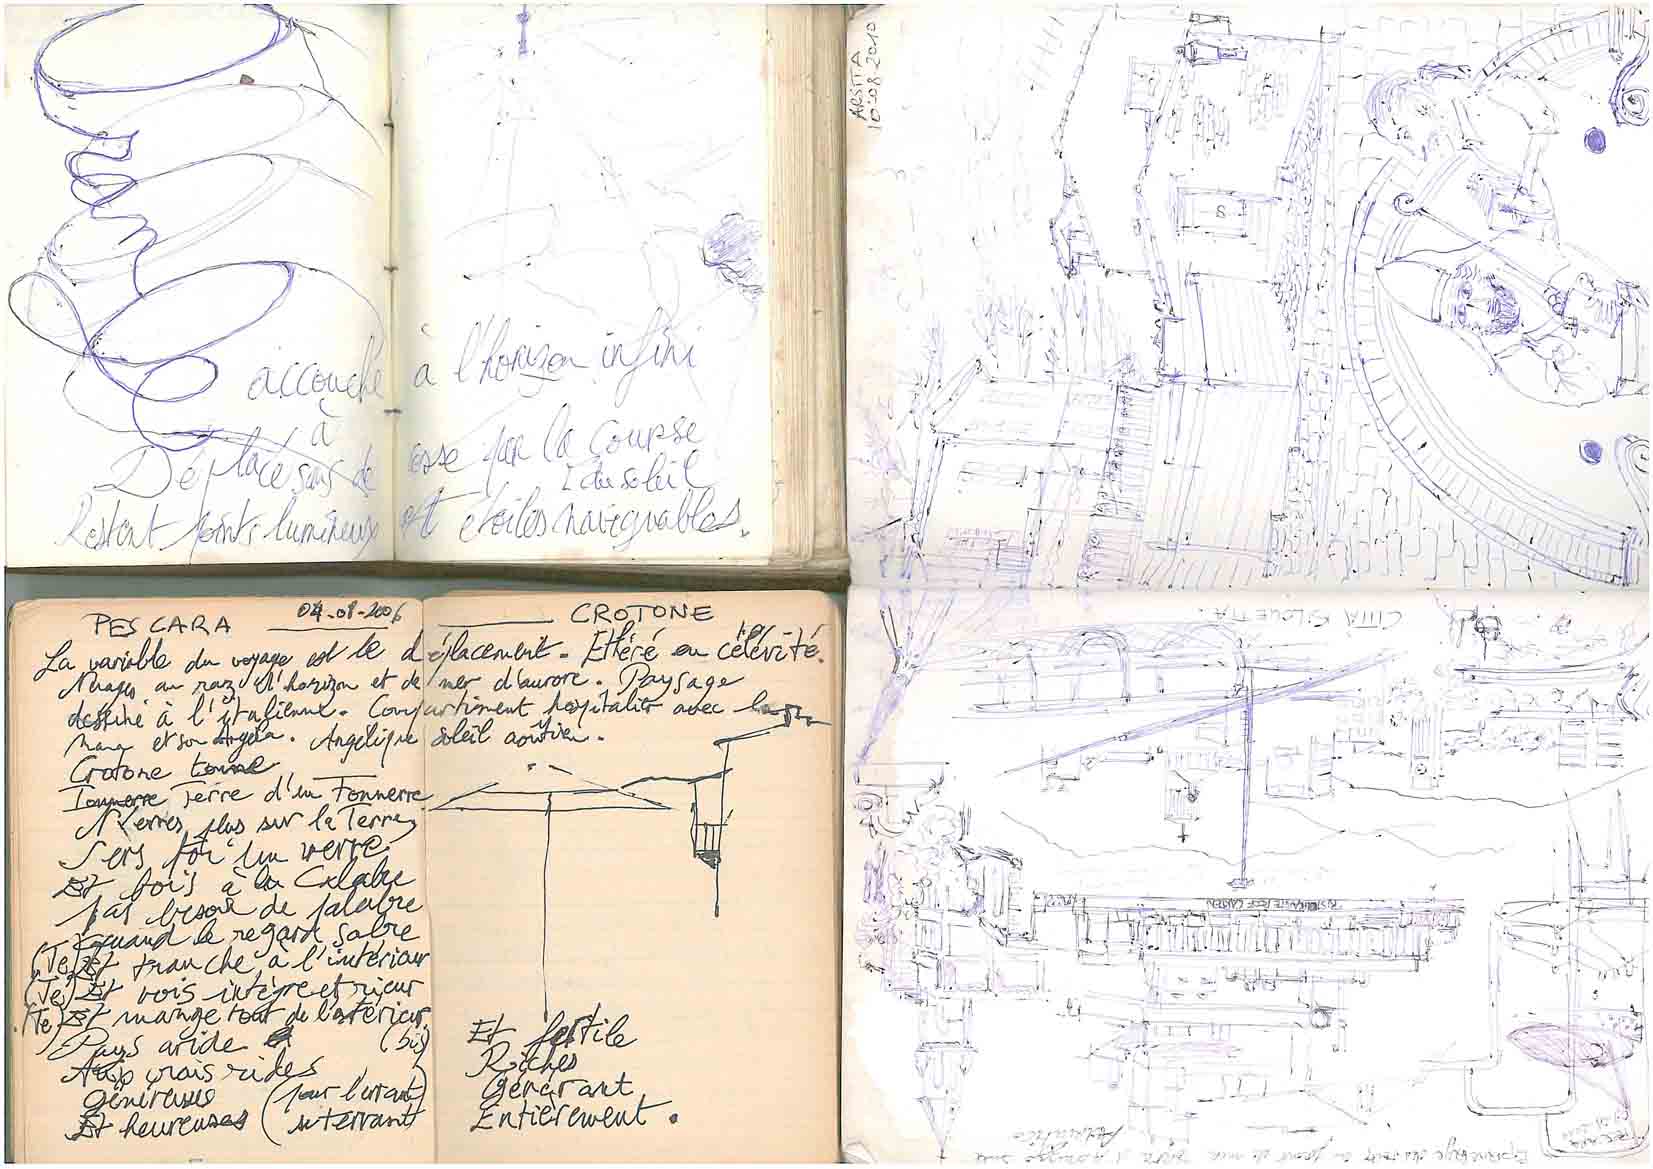 accouche à l'horizon infini
à
Déplacé sans de esse par la course
du soleil
Restent points lumineux et étoiles navigables.
ARSITA
10.08.2010
S
PESCARA 04-08-2006 CROTONE
La variable du voyage est le déplacement. Ethéré en célérité.
Nuages au raz d'l'horizon et de mer d'aurore. Paysage
dessiné à l'italienne. Compartiment hospitalier avec la
mama et son Angela. Angélique soleil aoutien.
Crotone tonne
Tonnerre Terre d'un Tonnerre
N'erres plus sur la Terre
Sers toi un verre
Et bois à la Calabre
Pas besoin de palabre
Quand le regard sabre
(Te) Et tranche à l'intérieur
(Te) Et vois intègre et rieur
(Te) Et mange tout de l'extérieur
Pays aride (bis)
Aux vrais rides
Généreuse (pour l'errant)
Et heureuses
Et fertile
Riches
Générant
Entièrement.
CITTÀ
RISTORANTE ROOF GARDEN